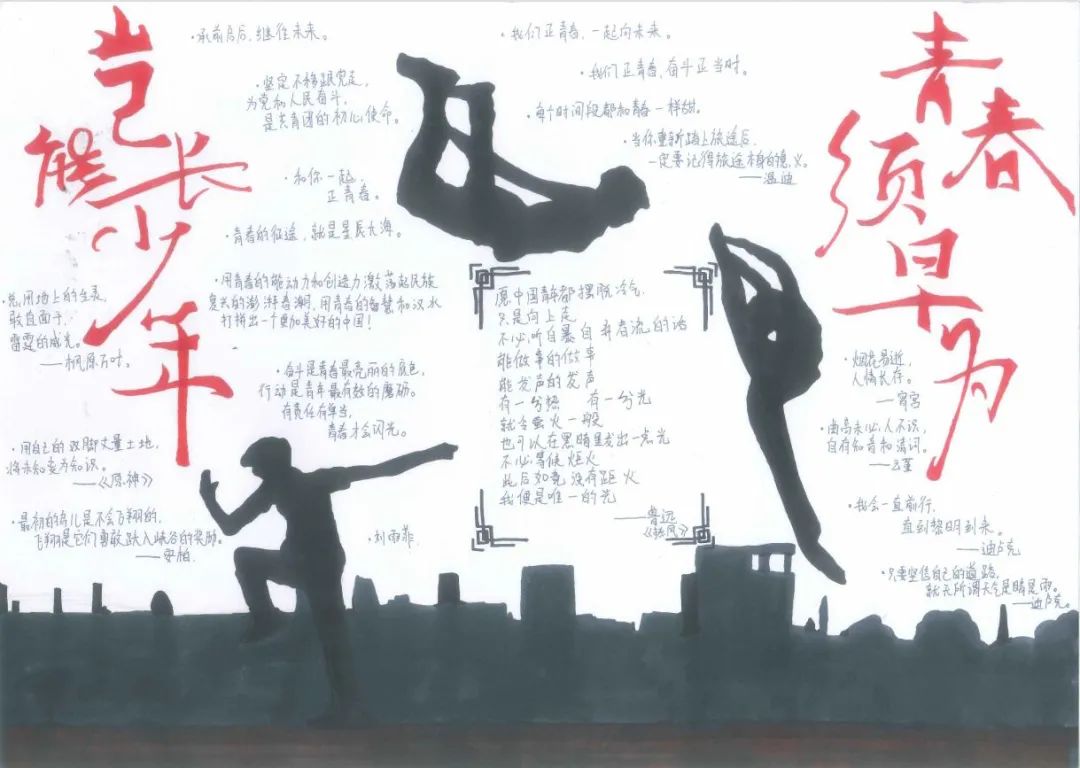 青春
须早为
岂
能长
少年
·承前启后,继往未来。
·坚定不移跟党走,
为党和人民奋斗,
是共青团的初心使命。
·和你一起,
正青春。
·青春的征途,就是星辰大海。
·用青春的能动力和创造力激荡起民族
复兴的澎湃春潮,用青春的智慧和汉水
打拼出一个更加美好的中国!
·奋斗是青春最亮丽的底色,
行动是青年最有效的磨砺。
有责任有担当,
青春才会闪光。
敢直面于
雷霆的威光。
——枫原万叶。
·用自己的双脚丈量土地,
将未知变为知识。
——《原神》
·最初的鸟儿是不会飞翔的,
飞翔是它们勇敢跃入峡谷的奖励。
——安柏
·刘雨菲
·我们正青春,一起向未来。
·我们正青春,奋斗正当时。
·每个时间段都和青春一样甜。
·当你重新踏上旅途后,
一定要记得旅途本身的意义。
——温迪
愿中国青年都摆脱冷气,
只是向上走
不必听自暴自弃者流的话
能做事的做事
能发声的发声
有一分热 有一分光
就令萤火一般
也可以在黑暗里发出一点光
不必等候炬火
此后如竟没有距火
我便是唯一的光
——鲁迅
《热风》
·烟花易逝,
人情长存。
——宵宫
·曲高未必人不识,
自有知音和清词。
——云堇
·我会一直前行,
直到黎明到来。
——迪卢克
·只要坚信自己的道路,
就无所谓天气是晴是雨。
——迪卢克。